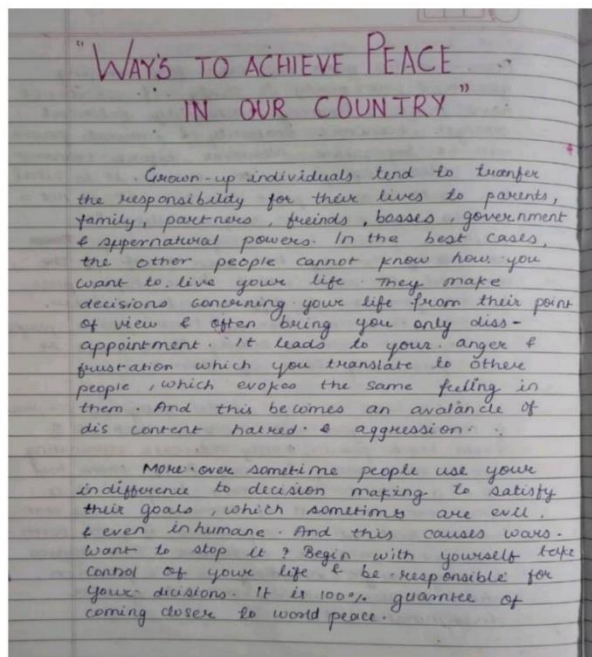 "WAYS TO ACHIEVE PEACE
IN OUR COUNTRY"
Grown-up individuals tend to tranfer
the responsibility for their lives to parents,
family, partners, freinds, bosses, government
& supernatural powers. In the best cases,
the other people cannot know how you
want to live your life. They make
decisions concerning your life from their point
of view & often bring you only diss-
appointment. It leads to your anger &
frustation which you translate to othere
people, which evokes the same feeling in
them. And this becomes an avalancle of
dis content hatred & aggression.
More over sometime people use your
indifference to decision making to satisfy
their goals, which sometims are evil.
& even inhumane. And this causes wars.
Want to stop it? Begin with yourself take
control of your life & be responsible for
your dicisions. It is 100% guarntee of
coming closer to world peace.